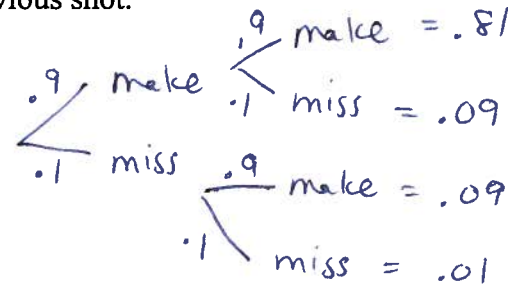 vious shot.
.9 make = .81
.9 make
.1 miss = .09
.1 miss
.9 make = .09
.1 miss = .01